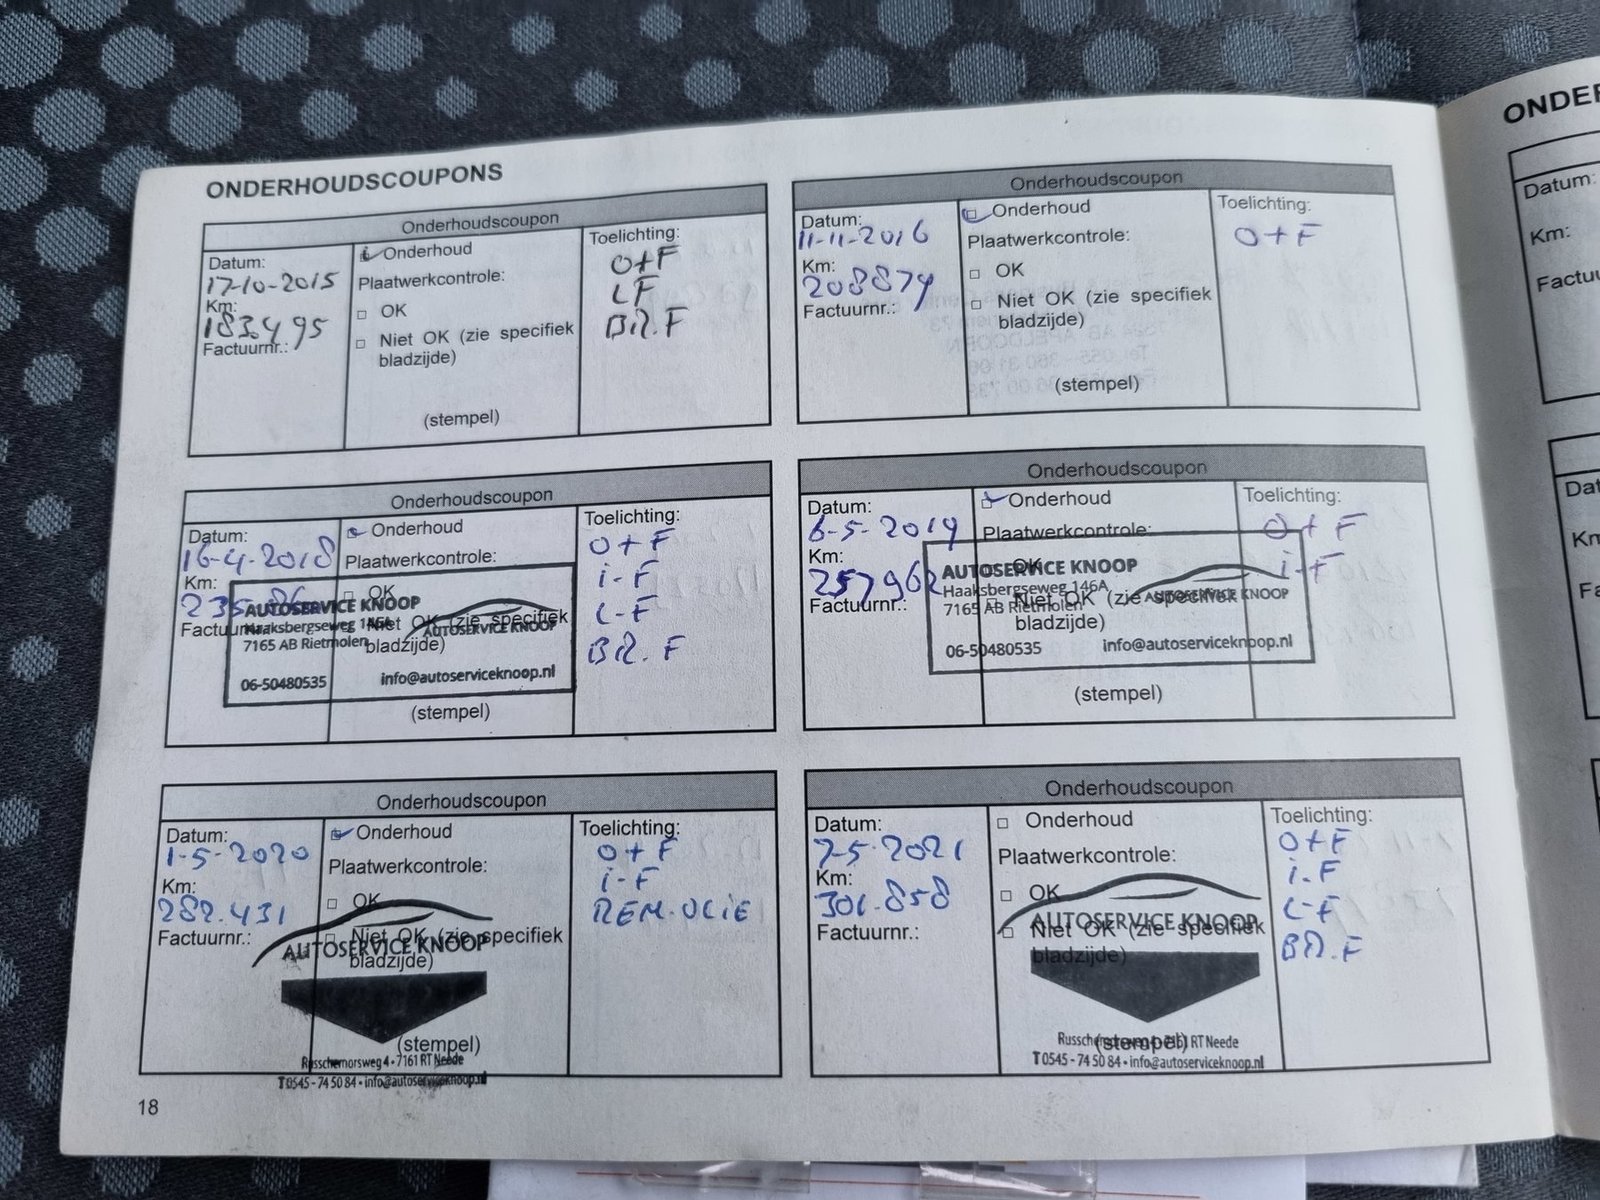 ONDERHOUDSCOUPONS
Onderhoudscoupon
Datum:
17-10-2015
Km:
183.495
Factuurnr.:
Onderhoud
Plaatwerkcontrole:
OK
Niet OK (zie specifiek
bladzijde)
(stempel)
Toelichting:
O+F
LF
BR.F
Onderhoudscoupon
Datum:
11-11-2016
Km:
208874
Factuurnr.:
Onderhoud
Plaatwerkcontrole:
OK
Niet OK (zie specifiek
bladzijde)
(stempel)
Toelichting:
O+F
Onderhoudscoupon
Datum:
16-4-2018
Km:
Factuurnr.:
Onderhoud
Plaatwerkcontrole:
OK
Niet OK (zie specifiek
bladzijde)
(stempel)
AUTOSERVICE KNOOP
Haaksbergseweg 146A
7165 AB Rietmolen
AUTOSERVICE KNOOP
06-50480535
info@autoserviceknoop.nl
Toelichting:
O+F
i-F
L-F
BR.F
Onderhoudscoupon
Datum:
6-5-2019
Km:
257962
Factuurnr.:
Onderhoud
Plaatwerkcontrole:
OK
Niet OK (zie specifiek
bladzijde)
(stempel)
AUTOSERVICE KNOOP
Haaksbergseweg 146A
7165 AB Rietmolen
AUTOSERVICE KNOOP
06-50480535
info@autoserviceknoop.nl
Toelichting:
O+F
i-F
Onderhoudscoupon
Datum:
1-5-2020
Km:
282.431
Factuurnr.:
Onderhoud
Plaatwerkcontrole:
OK
Niet OK (zie specifiek
bladzijde)
(stempel)
AUTOSERVICE KNOOP
Russchemorsweg 4 • 7161 RT Neede
T 0545 - 74 50 84 • info@autoserviceknoop.nl
Toelichting:
O+F
i-F
REM.OLIE
Onderhoudscoupon
Datum:
7-5-2021
Km:
301.858
Factuurnr.:
Onderhoud
Plaatwerkcontrole:
OK
Niet OK (zie specifiek
bladzijde)
(stempel)
AUTOSERVICE KNOOP
Russchemorsweg 4 • 7161 RT Neede
T 0545 - 74 50 84 • info@autoserviceknoop.nl
Toelichting:
O+F
i.F
L-F
BR.F
18
Datum:
Km: